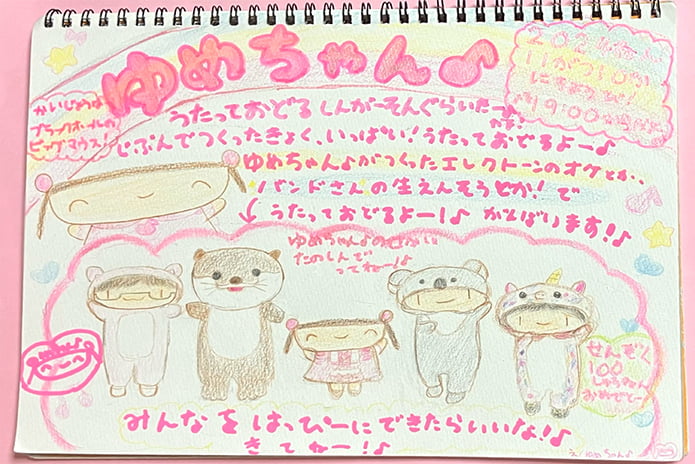 ゆめちゃん♪
かいじょうは
ブラックホールの
ビッグマウス!
うたっておどるしんがーそんぐらいたー♪
じぶんでつくったきょく、いっぱい!うたっておどるよー♪
ゆめちゃん♪がつくったエレクトーンのオケとか、
バンドさんの生えんそうとか!で
うたっておどるよー!♪ がんばります!♪
ゆめちゃん♪のせかい
たのしんで
ってねー!♪
せんぞく
100
しゅうねん
おめでとー
みんなをはっぴーにできたらいいな!♪
きてねー!♪
え ゆめちゃん♪